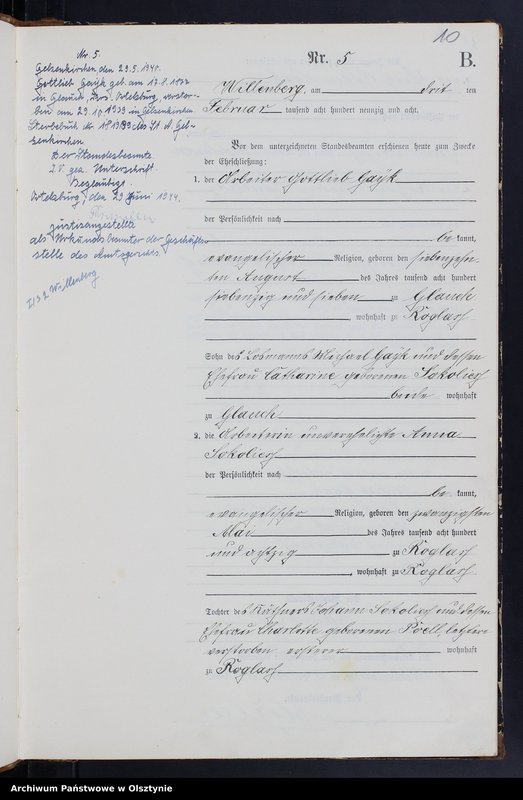 10
Nr. 5
B.
Nr. 5.
Gelsenkirchen den 29.5.1940.
Gottlieb Gayk geb. am 17.8.1877
in Glauch, Kreis Ortelsburg, verstor-
ben am 29.10.1939 in Gelsenkirchen.
Sterbebuch Nr. des St. A. Gel-
senkirchen
Der Standesbeamte
I.V. gez. Unterschrift.
Beglaubigt
Ortelsburg, den 29 Juni 1944.
Justizangestellte
als Urkundsbeamter der Geschäfts-
stelle des Amtsgerichts
Willenberg
Willenberg, am drit ten
Februar tausend acht hundert neunzig und acht.
Vor dem unterzeichneten Standesbeamten erschienen heute zum Zwecke
der Eheschließung:
1. der Arbeiter Gottlieb Gayk
der Persönlichkeit nach
be kannt,
evangelischer Religion, geboren den siebenzehn-
ten August des Jahres tausend acht hundert
siebenzig und sieben zu Glauch
, wohnhaft zu Röglas
Sohn des Losmanns Michael Gayk und dessen
Ehefrau Catharine geborenen
beide wohnhaft
zu Glauch
2. die Arbeiterin unverehelichte Anna
der Persönlichkeit nach
be kannt,
evangelischer Religion, geboren den zwanzigsten
Mai des Jahres tausend acht hundert
und achtzig zu
, wohnhaft zu
Tochter des Käthners Johann und dessen
Ehefrau Charlotte geborenen letztere
verstorben, ersterer wohnhaft
zu
Archiwum Państwowe w Olsztynie